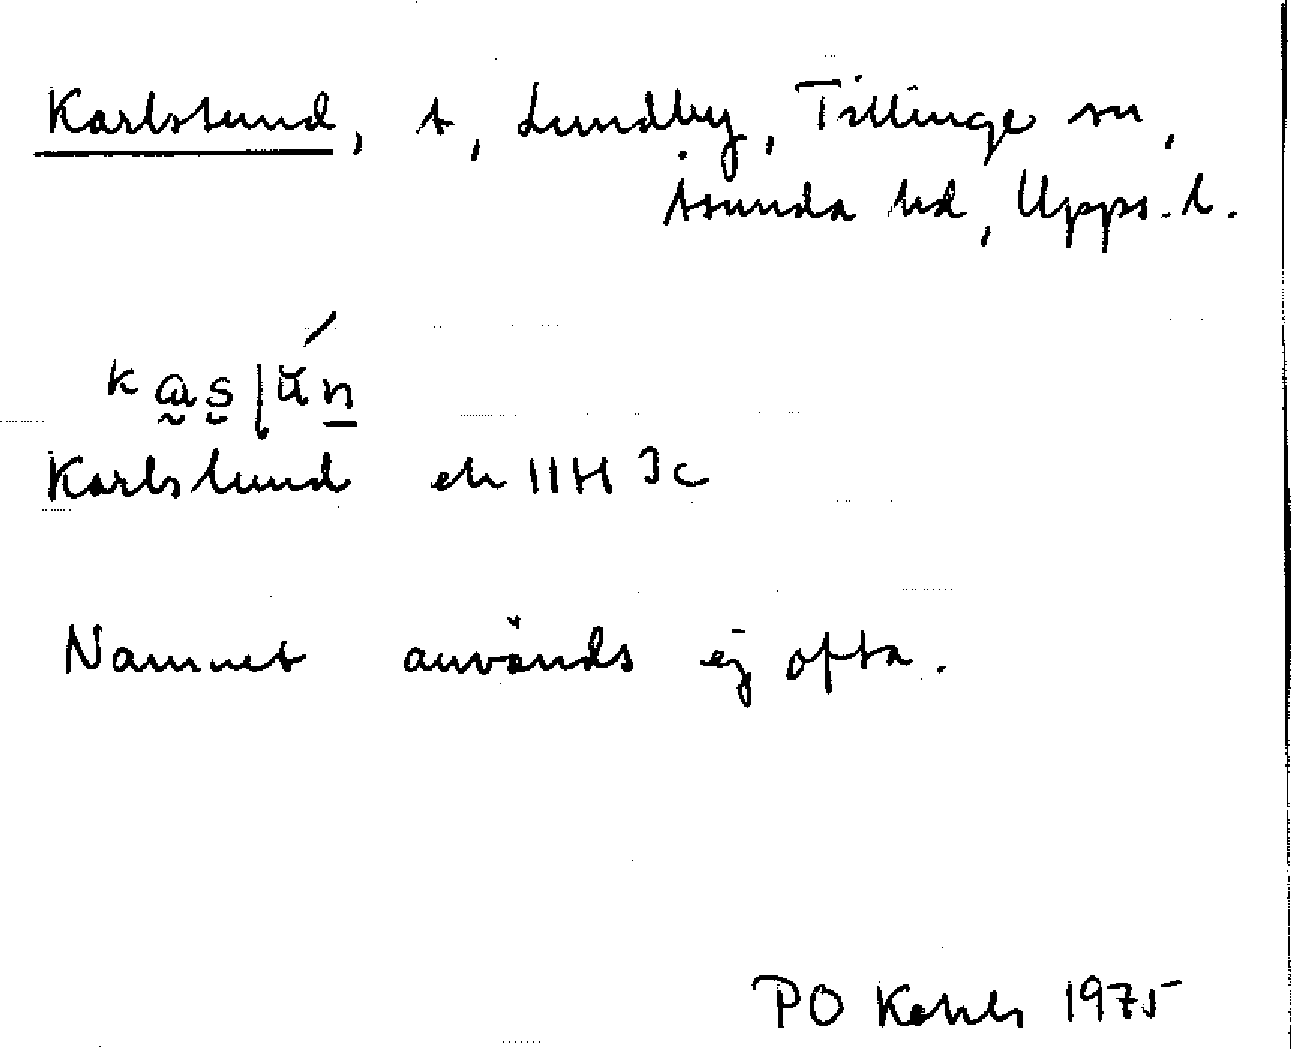 Karlslund, t, Lundby, Tillinge sn,
Åsunda hd, Upps. l.
Karlslund ek 11H 3c
Namnet används ej ofta.
PO 1975